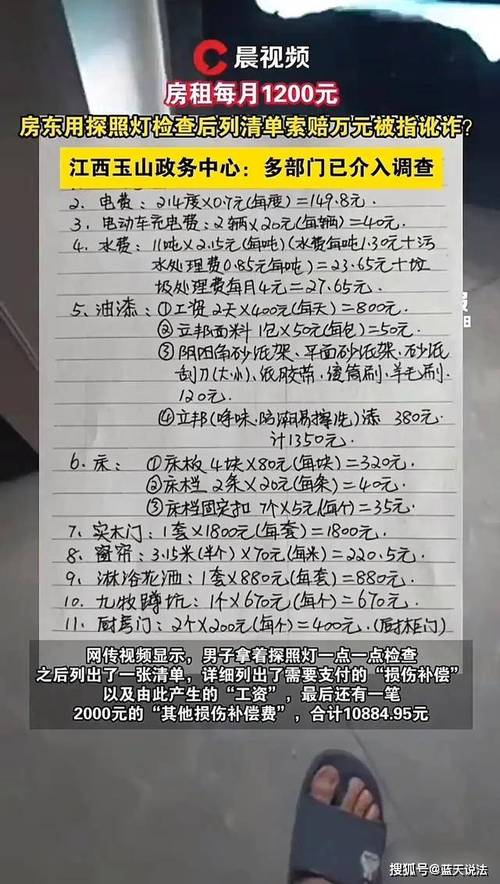 晨视频
房租每月1200元
房东用探照灯检查后列清单索赔万元被指讹诈?
江西玉山政务中心：多部门已介入调查
2. 电费：214度×0.7元(每度)=149.8元.
3. 电动车充电费：2辆×20元(每辆)=40元.
4. 水费：11吨×2.15元(每吨)(水费每吨1.30元+污
水处理费0.85元每吨)=23.65元+垃
圾处理费每月4元=27.65元.
5. 油漆：①工资2天×400元(每天)=800元.
②立邦面料1包×50元(每包)=50元.
③阴阳角砂纸架、平面砂纸架、砂纸
刮刀(大小)、纸胶带、滚筒刷、羊毛刷
120元.
④立邦(净味、防潮易擦洗)漆 380元.
计1350元.
6. 床：①床板4块×80元(每块)=320元.
②床栏2条×20元(每条)=40元.
③床栏固定扣7个×5元(每个)=35元.
7. 实木门：1套×1800元(每套)=1800元.
8. 窗帘：3.15米(半个)×70元(每米)=220.5元.
9. 淋浴花洒：1套×880元(每套)=880元.
10. 九牧蹲坑：1个×670元(每个)=670元.
11. 厨房门：2个×200元(每个)=400元.(厨柜门)
网传视频显示，男子拿着探照灯一点一点检查
之后列出了一张清单，详细列出了需要支付的“损伤补偿”
以及由此产生的“工资”，最后还有一笔
2000元的“其他损伤补偿费”，合计10884.95元
搜狐号@蓝天说法